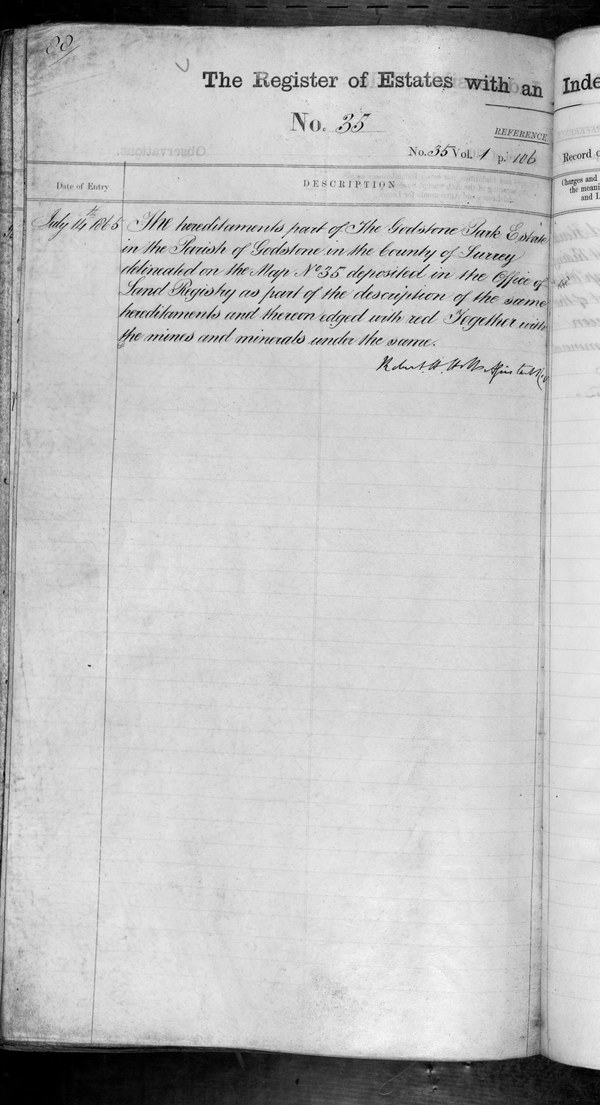 88
The Register of Estates with an Inde
No. 35
REFERENCE
No. 35 Vol. 1 p. 106
Record o
Date of Entry
DESCRIPTION
Charges and
the meani
and L
July 14th 1865 The hereditaments part of The Godstone Park Estate
in the Parish of Godstone in the County of Surrey
delineated on the Map No 35 deposited in the Office of
Land Registry as part of the description of the same
hereditaments and thereon edged with red Together with
the mines and minerals under the same.
Robert H. Holt